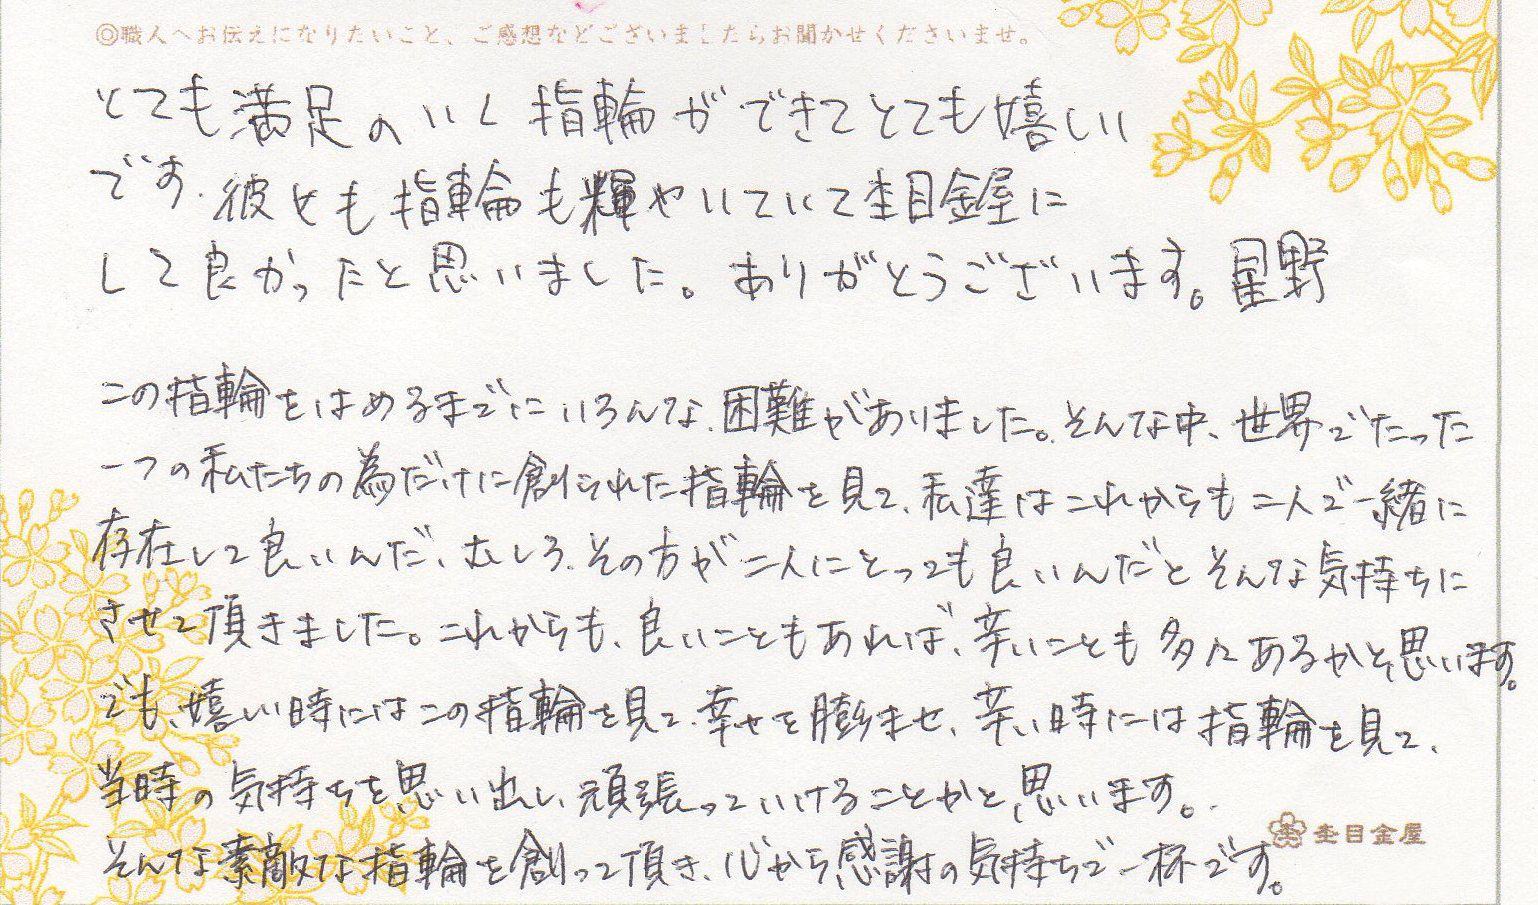 ◎職人へお伝えになりたいこと、ご感想などございましたらお聞かせくださいませ。
とても満足のいく指輪ができてとても嬉しい
です。彼女も指輪も輝やいていて杢目金屋に
して良かったと思いました。ありがとうございます。星野
この指輪をはめるまでにいろんな困難がありました。そんな中、世界でたった
一つの私たちの為だけに創られた指輪を見て、私達はこれからも二人で一緒に
存在して良いんだ、むしろ、その方が二人にとっても良いんだとそんな気持ちに
させて頂きました。これからも、良いこともあれば、辛いことも多々あるかと思います。
でも、嬉しい時にはこの指輪を見て、幸せを膨ませ、辛い時には指輪を見て、
当時の気持ちを思い出し、頑張っていけることかと思います。
そんな素敵な指輪を創って頂き、心から感謝の気持ちで一杯です。
杢目金屋